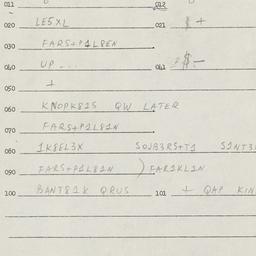 011 012
020 LE5XL 021 $ +
030 FARS+P1L8EN
040 UP ... 041 $ —
050 +
060 KNOPK825 QW LATER
070 FARS+P1L81N
080 1K8EL3X SOJB3RS+T1 S1NT3
090 FARS+P1L81N ) FAR1KL1N
100 BANT818 QRUS 101 + QAP KIN